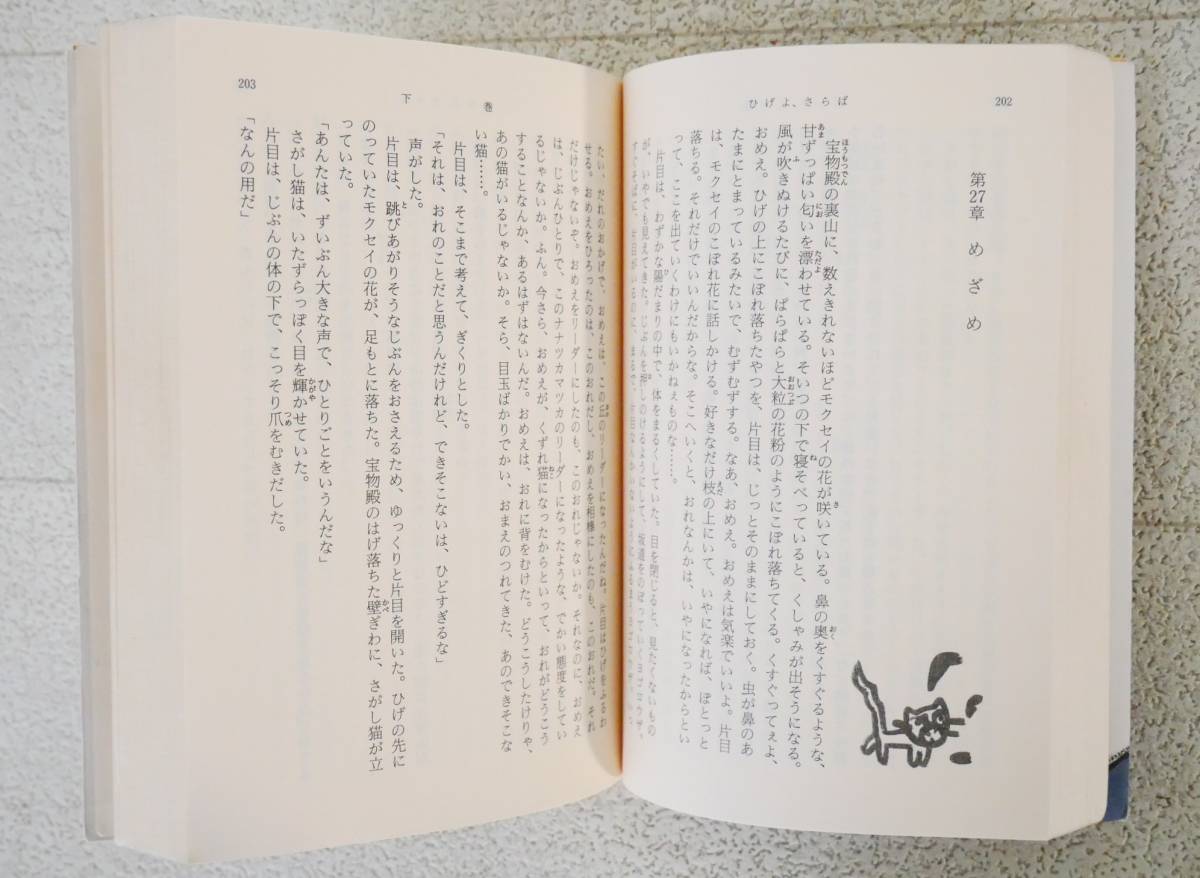 202
ひげよ、さらば
第27章 めざめ
宝物殿の裏山に、数えきれないほどモクセイの花が咲いている。鼻の奥をくすぐるような、
甘ずっぱい匂いを漂わせている。そいつの下で寝そべっていると、くしゃみが出そうになる。
風が吹きぬけるたびに、ぱらぱらと大粒の花粉のようにこぼれ落ちてくる。くすぐってえよ、
おめえ。ひげの上にこぼれ落ちたやつを、片目は、じっとそのままにしておく。虫が鼻のあ
たまにとまっているみたいで、むずむずする。なあ、おめえ。おめえは気楽でいいよ。片目
は、モクセイのこぼれ花に話しかける。好きなだけ枝の上にいて、いやになれば、ぽとっと
落ちる。それだけでいいんだからな。そこへいくと、おれなんかは、いやになったからとい
って、ここを出ていくわけにもいかねえものな……。
片目は、わずかな陽だまりの中で、体をまるくしていた。目を閉じると、見たくないもの
が、いやでも見えてきた。じぶんを押しのけるようにして、坂道をのぼっていくヨゴロウザ。
すぐそばに、片目がいるのに、まるで、片目なんかいないように
203
下巻
たい、だれのおかげで、おめえは、この丘のリーダーになったんだね。片目はひげをふるわ
せる。おめえをひろったのは、このおれだし、おめえを相棒にしたのも、このおれだ。それ
だけじゃないぞ。おめえをリーダーにしたのも、このおれじゃないか。それなのに、おめえ
は、じぶんひとりで、このナナツカマツカのリーダーになったような、でかい態度をしてい
るじゃないか。ふん。今さら、おめえが、くずれ猫になったからといって、おれがどうこう
することなんか、あるはずはないんだ。おめえは、おれに背をむけた。どうこうしたけりゃ、
あの猫がいるじゃないか。そら、目玉ばかりでかい、おまえのつれてきた、あのできそこな
い猫……。
片目は、そこまで考えて、ぎくりとした。
「それは、おれのことだと思うんだけれど、できそこないは、ひどすぎるな」
声がした。
片目は、跳びあがりそうなじぶんをおさえるため、ゆっくりと片目を開いた。ひげの先に
のっていたモクセイの花が、足もとに落ちた。宝物殿のはげ落ちた壁ぎわに、さがし猫が立
っていた。
「あんたは、ずいぶん大きな声で、ひとりごとをいうんだな」
さがし猫は、いたずらっぽく目を輝かせていた。
片目は、じぶんの体の下で、こっそり爪をむきだした。
「なんの用だ」